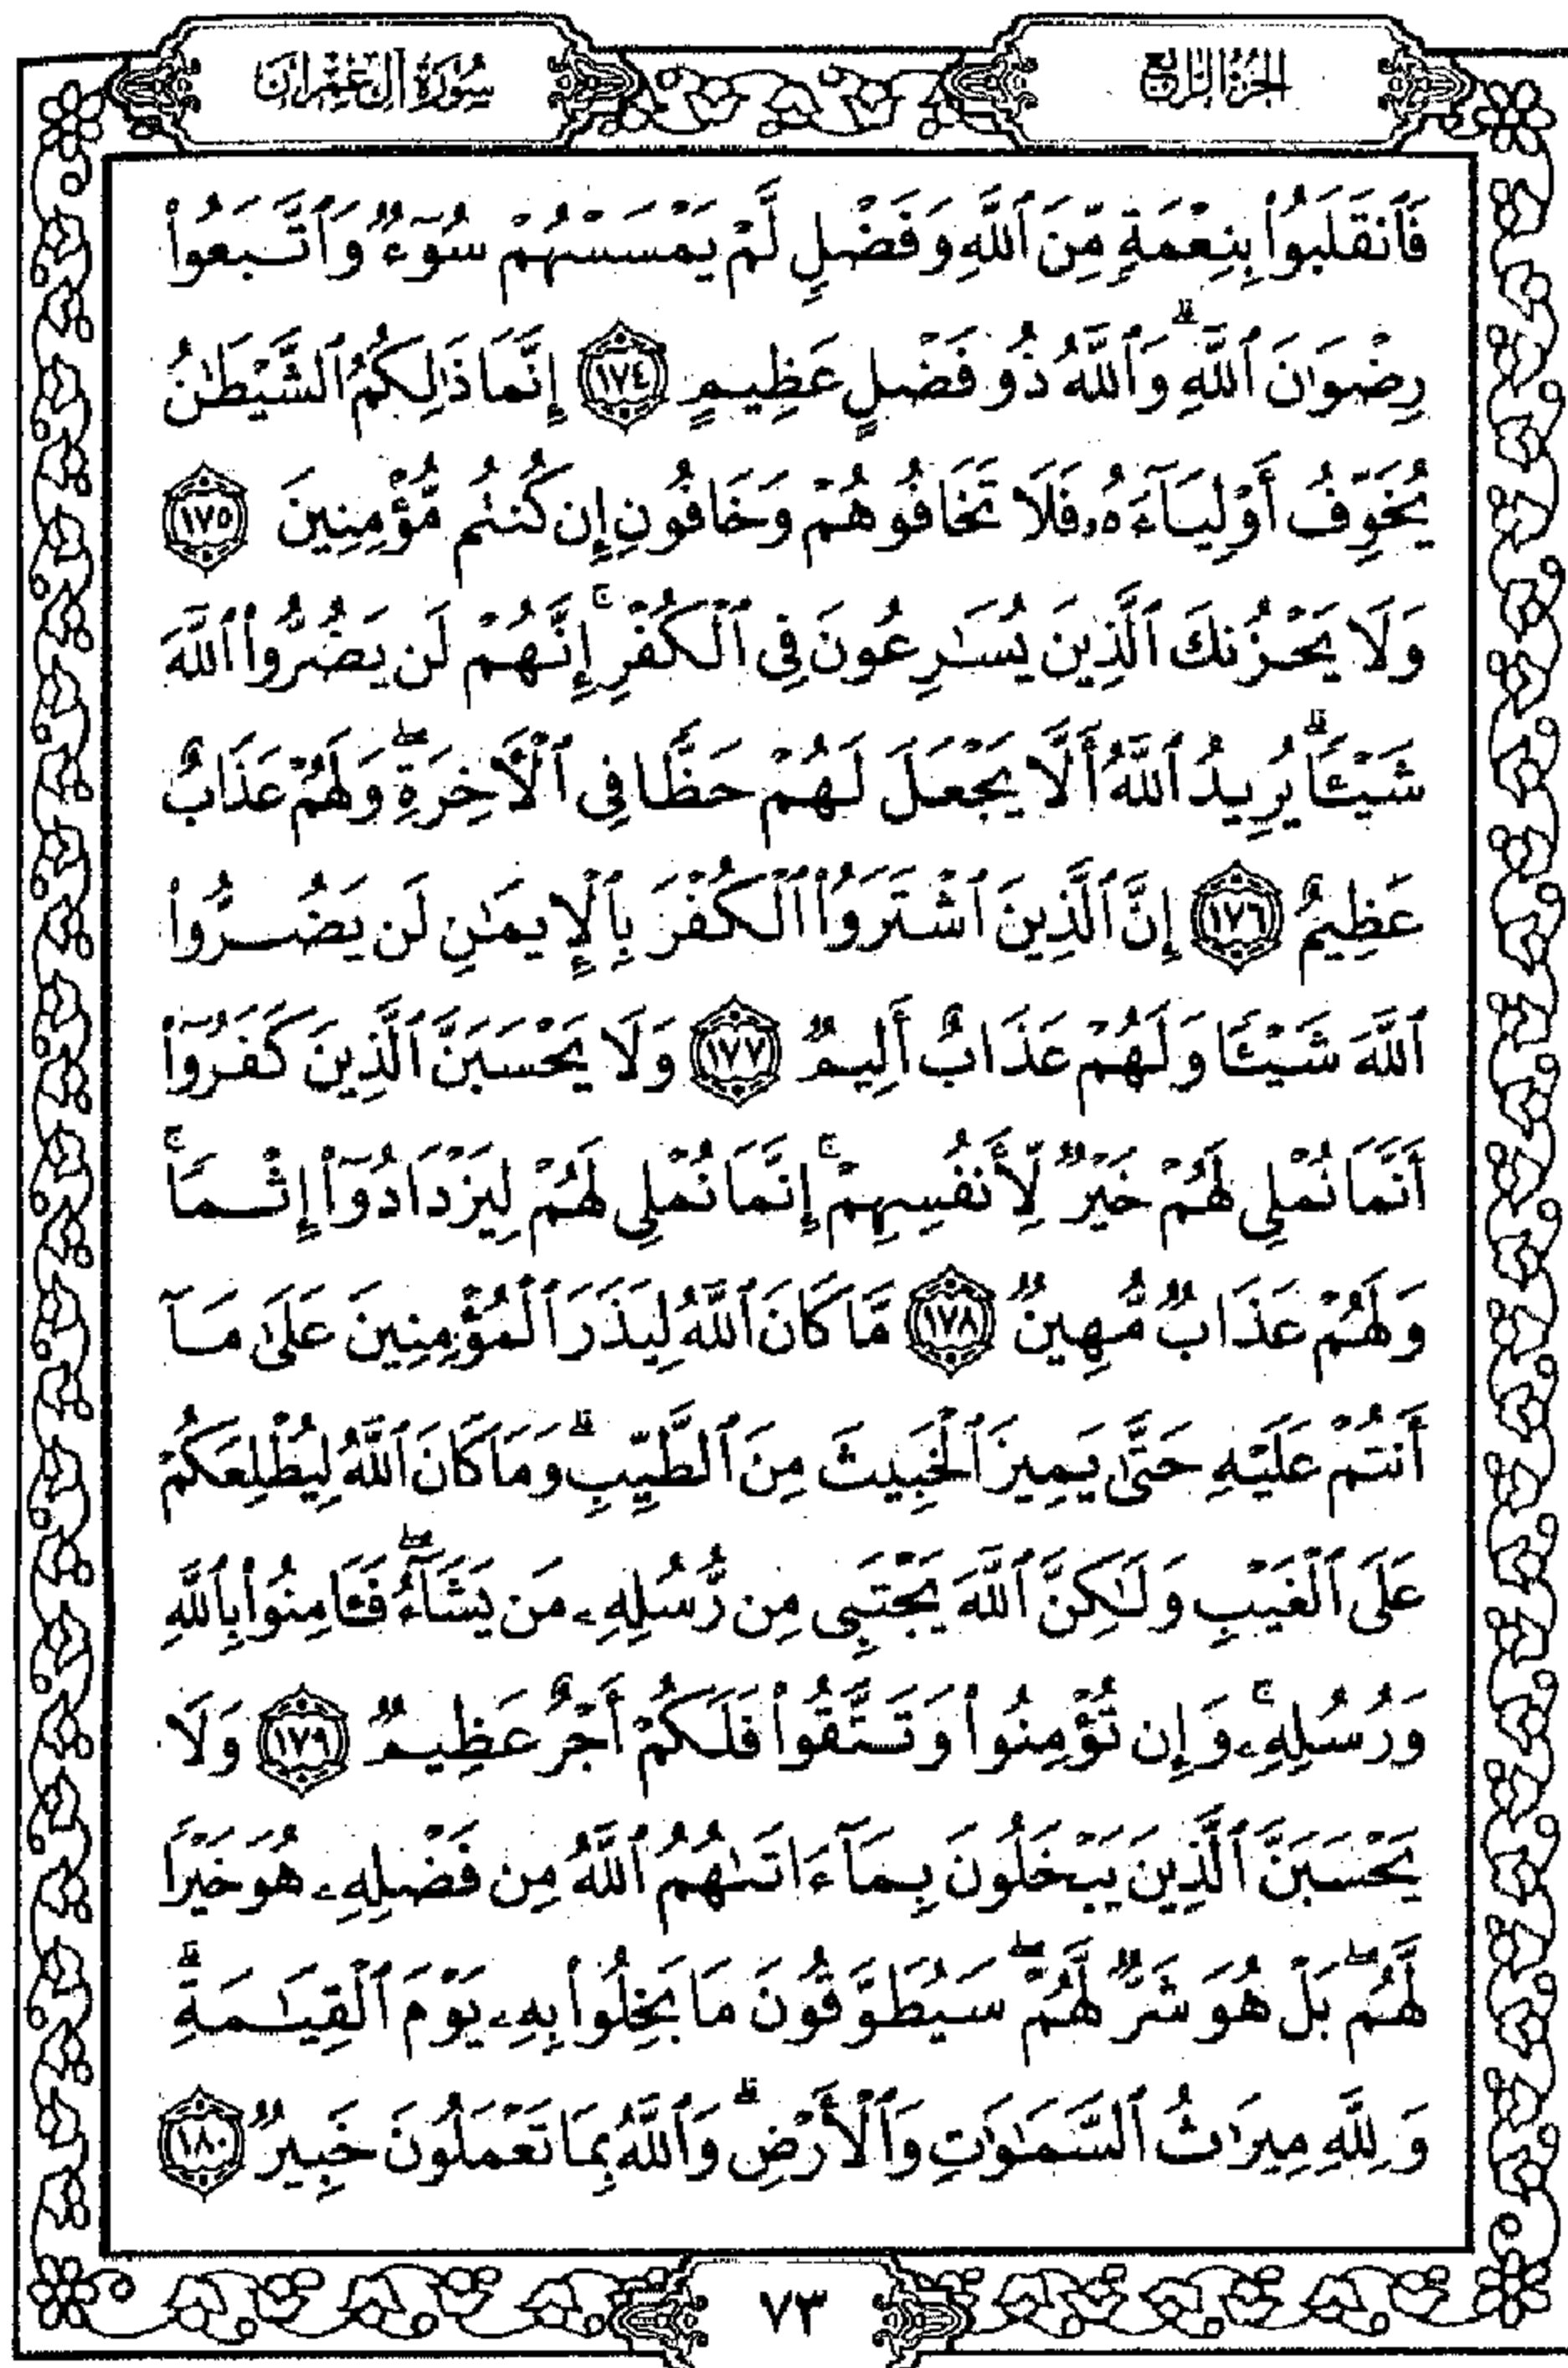 الجزء الرابع
سورة آل عمران
فَٱنقَلَبُوا۟ بِنِعْمَةٍ مِّنَ ٱللَّهِ وَفَضْلٍ لَّمْ يَمْسَسْهُمْ سُوٓءٌ وَٱتَّبَعُوا۟
رِضْوَٰنَ ٱللَّهِ ۗ وَٱللَّهُ ذُو فَضْلٍ عَظِيمٍ ١٧٤ إِنَّمَا ذَٰلِكُمُ ٱلشَّيْطَٰنُ
يُخَوِّفُ أَوْلِيَآءَهُۥ فَلَا تَخَافُوهُمْ وَخَافُونِ إِن كُنتُم مُّؤْمِنِينَ ١٧٥
وَلَا يَحْزُنكَ ٱلَّذِينَ يُسَٰرِعُونَ فِى ٱلْكُفْرِ ۚ إِنَّهُمْ لَن يَضُرُّوا۟ ٱللَّهَ
شَيْـًٔا ۗ يُرِيدُ ٱللَّهُ أَلَّا يَجْعَلَ لَهُمْ حَظًّا فِى ٱلْأَخِرَةِ ۖ وَلَهُمْ عَذَابٌ
عَظِيمٌ ١٧٦ إِنَّ ٱلَّذِينَ ٱشْتَرَوُا۟ ٱلْكُفْرَ بِٱلْإِيمَٰنِ لَن يَضُرُّوا۟
ٱللَّهَ شَيْـًٔا وَلَهُمْ عَذَابٌ أَلِيمٌ ١٧٧ وَلَا يَحْسَبَنَّ ٱلَّذِينَ كَفَرُوٓا۟
أَنَّمَا نُمْلِى لَهُمْ خَيْرٌ لِّأَنفُسِهِمْ ۚ إِنَّمَا نُمْلِى لَهُمْ لِيَزْدَادُوٓا۟ إِثْمًا ۚ
وَلَهُمْ عَذَابٌ مُّهِينٌ ١٧٨ مَّا كَانَ ٱللَّهُ لِيَذَرَ ٱلْمُؤْمِنِينَ عَلَىٰ مَآ
أَنتُمْ عَلَيْهِ حَتَّىٰ يَمِيزَ ٱلْخَبِيثَ مِنَ ٱلطَّيِّبِ ۗ وَمَا كَانَ ٱللَّهُ لِيُطْلِعَكُمْ
عَلَى ٱلْغَيْبِ وَلَٰكِنَّ ٱللَّهَ يَجْتَبِى مِن رُّسُلِهِۦ مَن يَشَآءُ ۖ فَـَٔامِنُوا۟ بِٱللَّهِ
وَرُسُلِهِۦ ۚ وَإِن تُؤْمِنُوا۟ وَتَتَّقُوا۟ فَلَكُمْ أَجْرٌ عَظِيمٌ ١٧٩ وَلَا
يَحْسَبَنَّ ٱلَّذِينَ يَبْخَلُونَ بِمَآ ءَاتَىٰهُمُ ٱللَّهُ مِن فَضْلِهِۦ هُوَ خَيْرًا
لَّهُم ۖ بَلْ هُوَ شَرٌّ لَّهُمْ ۖ سَيُطَوَّقُونَ مَا بَخِلُوا۟ بِهِۦ يَوْمَ ٱلْقِيَٰمَةِ ۗ
وَلِلَّهِ مِيرَٰثُ ٱلسَّمَٰوَٰتِ وَٱلْأَرْضِ ۗ وَٱللَّهُ بِمَا تَعْمَلُونَ خَبِيرٌ ١٨٠
٧٣